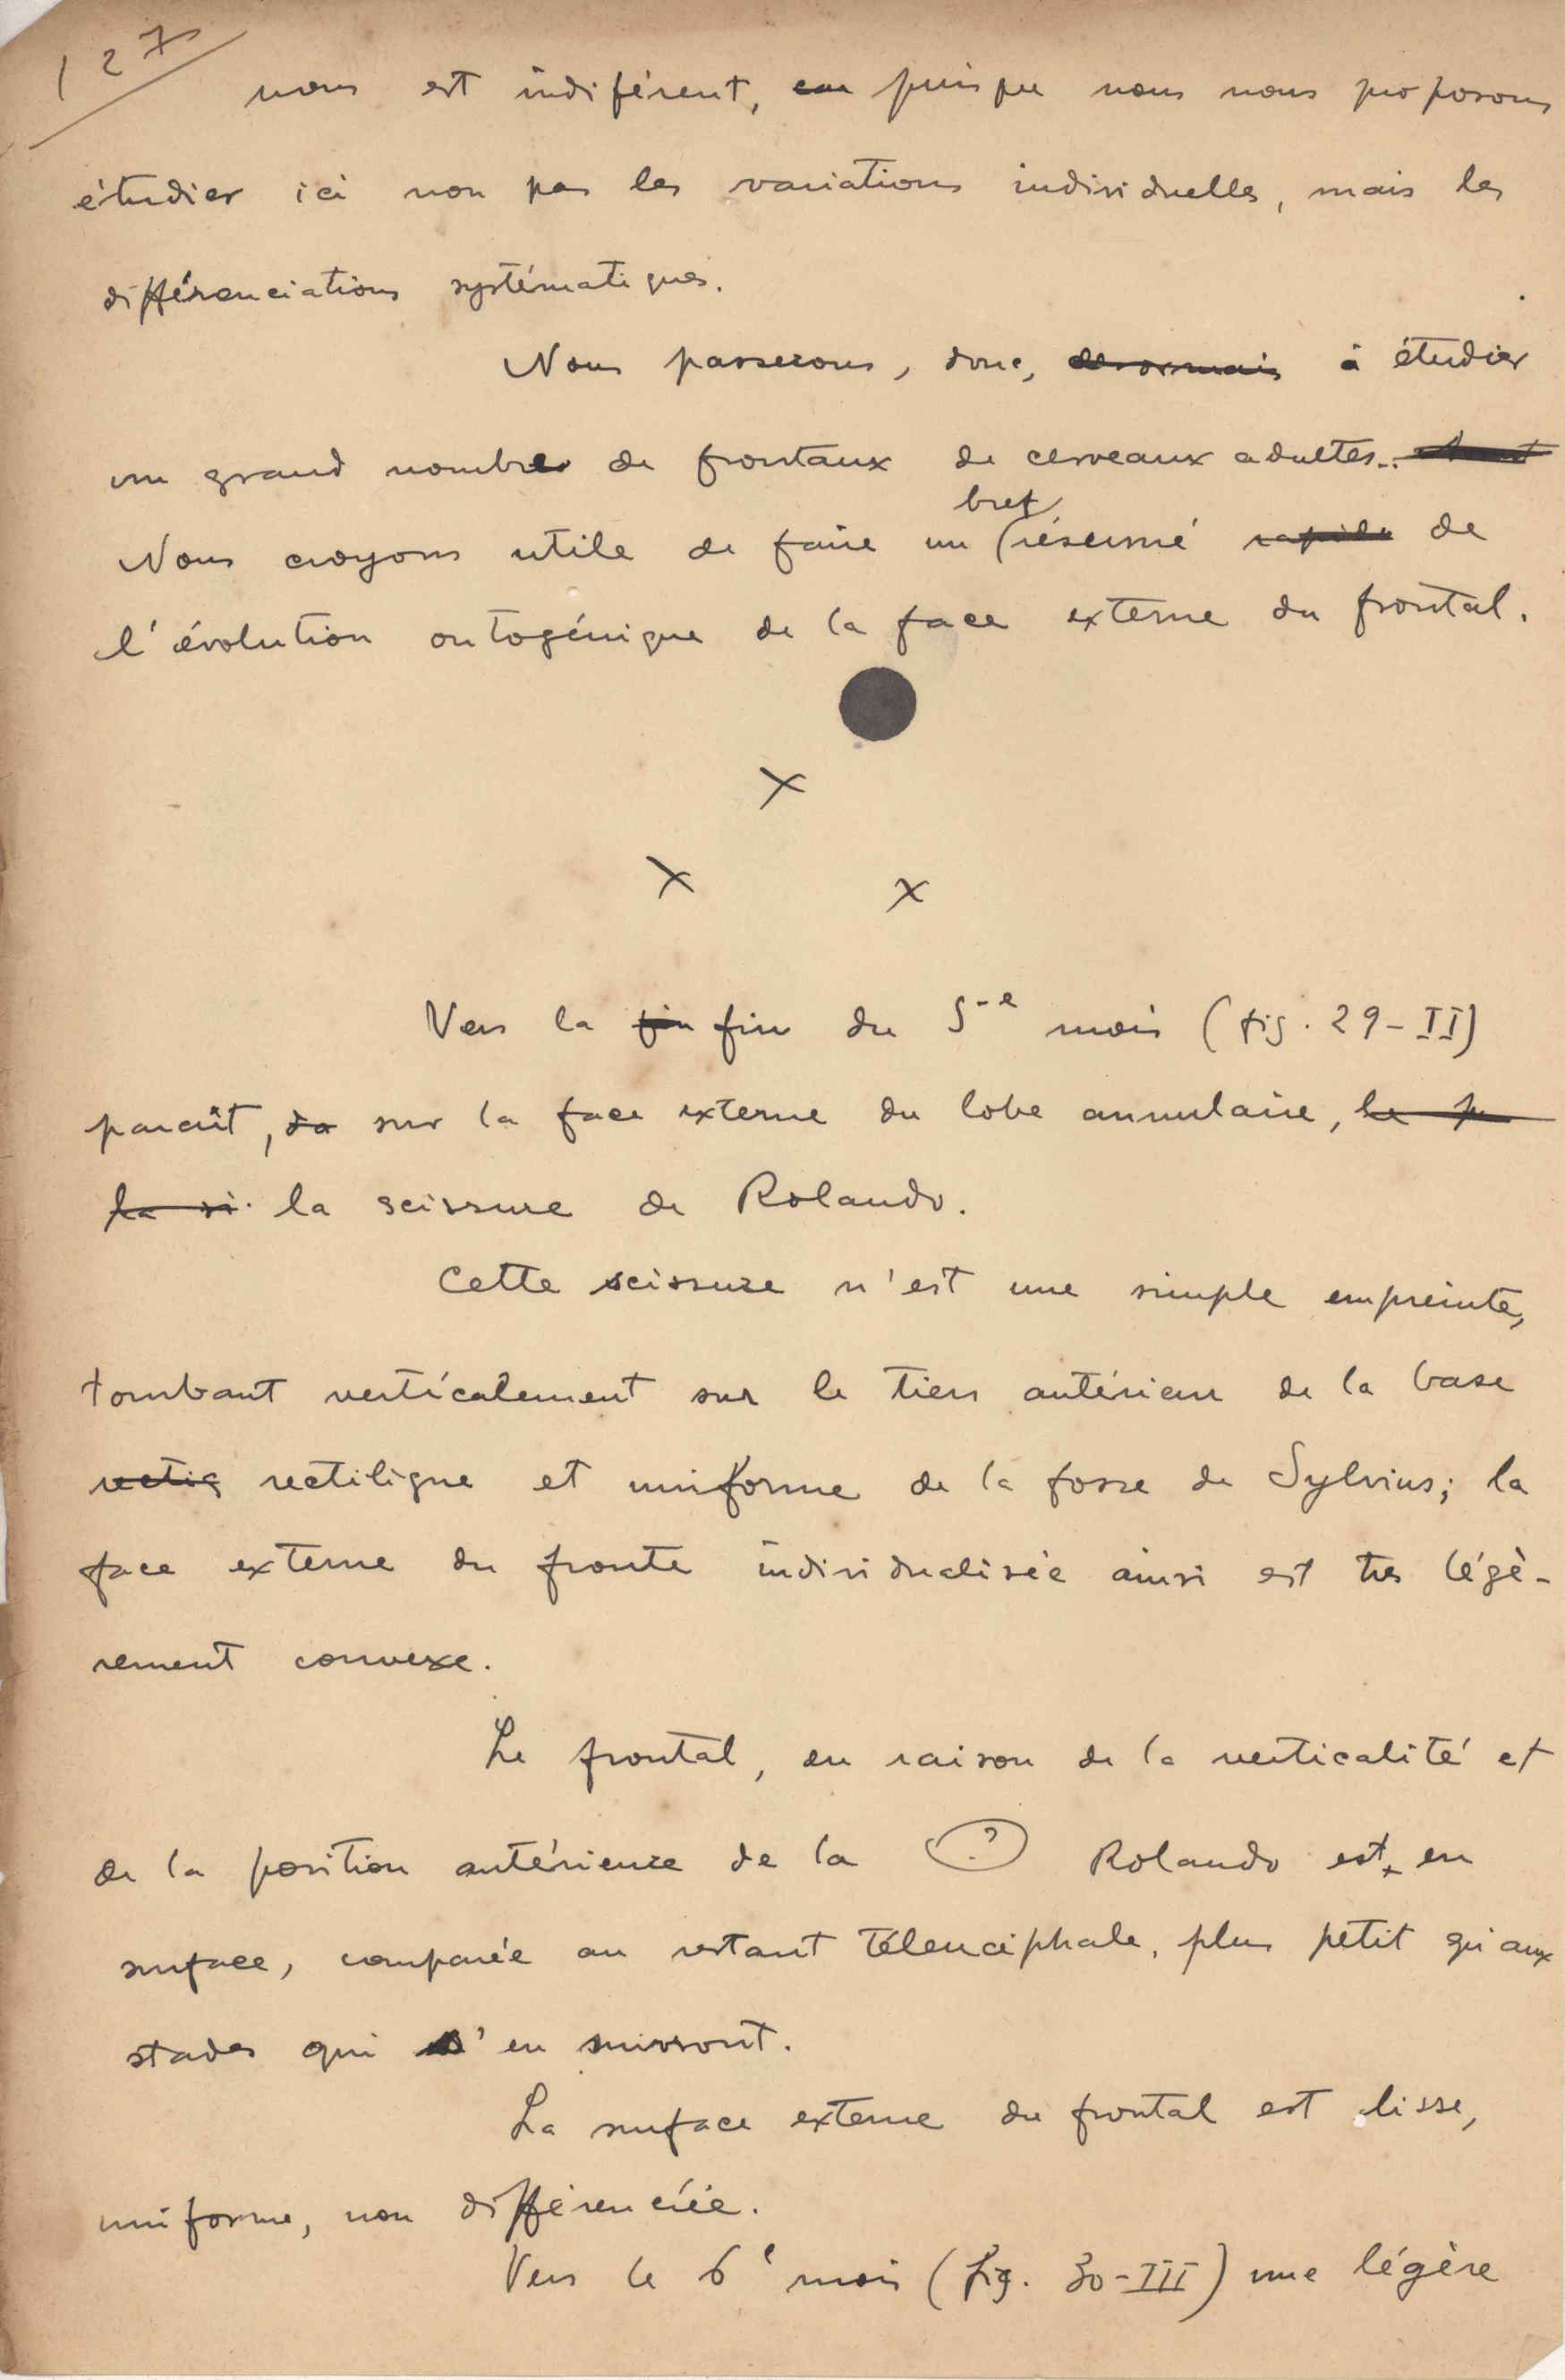 127
nous est indiférent, car puisque nous nous proposons
étudier ici non pas les variations individuelles, mais les
différenciations systématiques.
Nous passerons, donc, desormais à étudier
un grand nombre de frontaux de cerveaux adultes.
bref
Nous croyons utile de faire un résumé rapide de
l'évolution ontogénique de la face externe du frontal.
X
X X
Vers la fin fin du 5-e mois (fig. 29-II)
paraît, da sur la face externe du lobe annulaire, le p
la si la scissure de Rolando.
Cette scissure n'est une simple empreinte,
tombant verticalement sur le tiers antérieur de la base
rectig rectiligne et uniforme de la fosse de Sylvius; la
face externe du fronte individualisée ainsi est très légè-
rement convexe.
Le frontal, en raison de la verticalité et
de la position antérieure de la ? Rolando est en
surface, comparée au restant télencéphale, plus petit qu'aux
stades qui s'en suivront.
La surface externe du frontal est lisse,
uniforme, non différenciée.
Vers le 6e mois (fig. 30-III) une légère